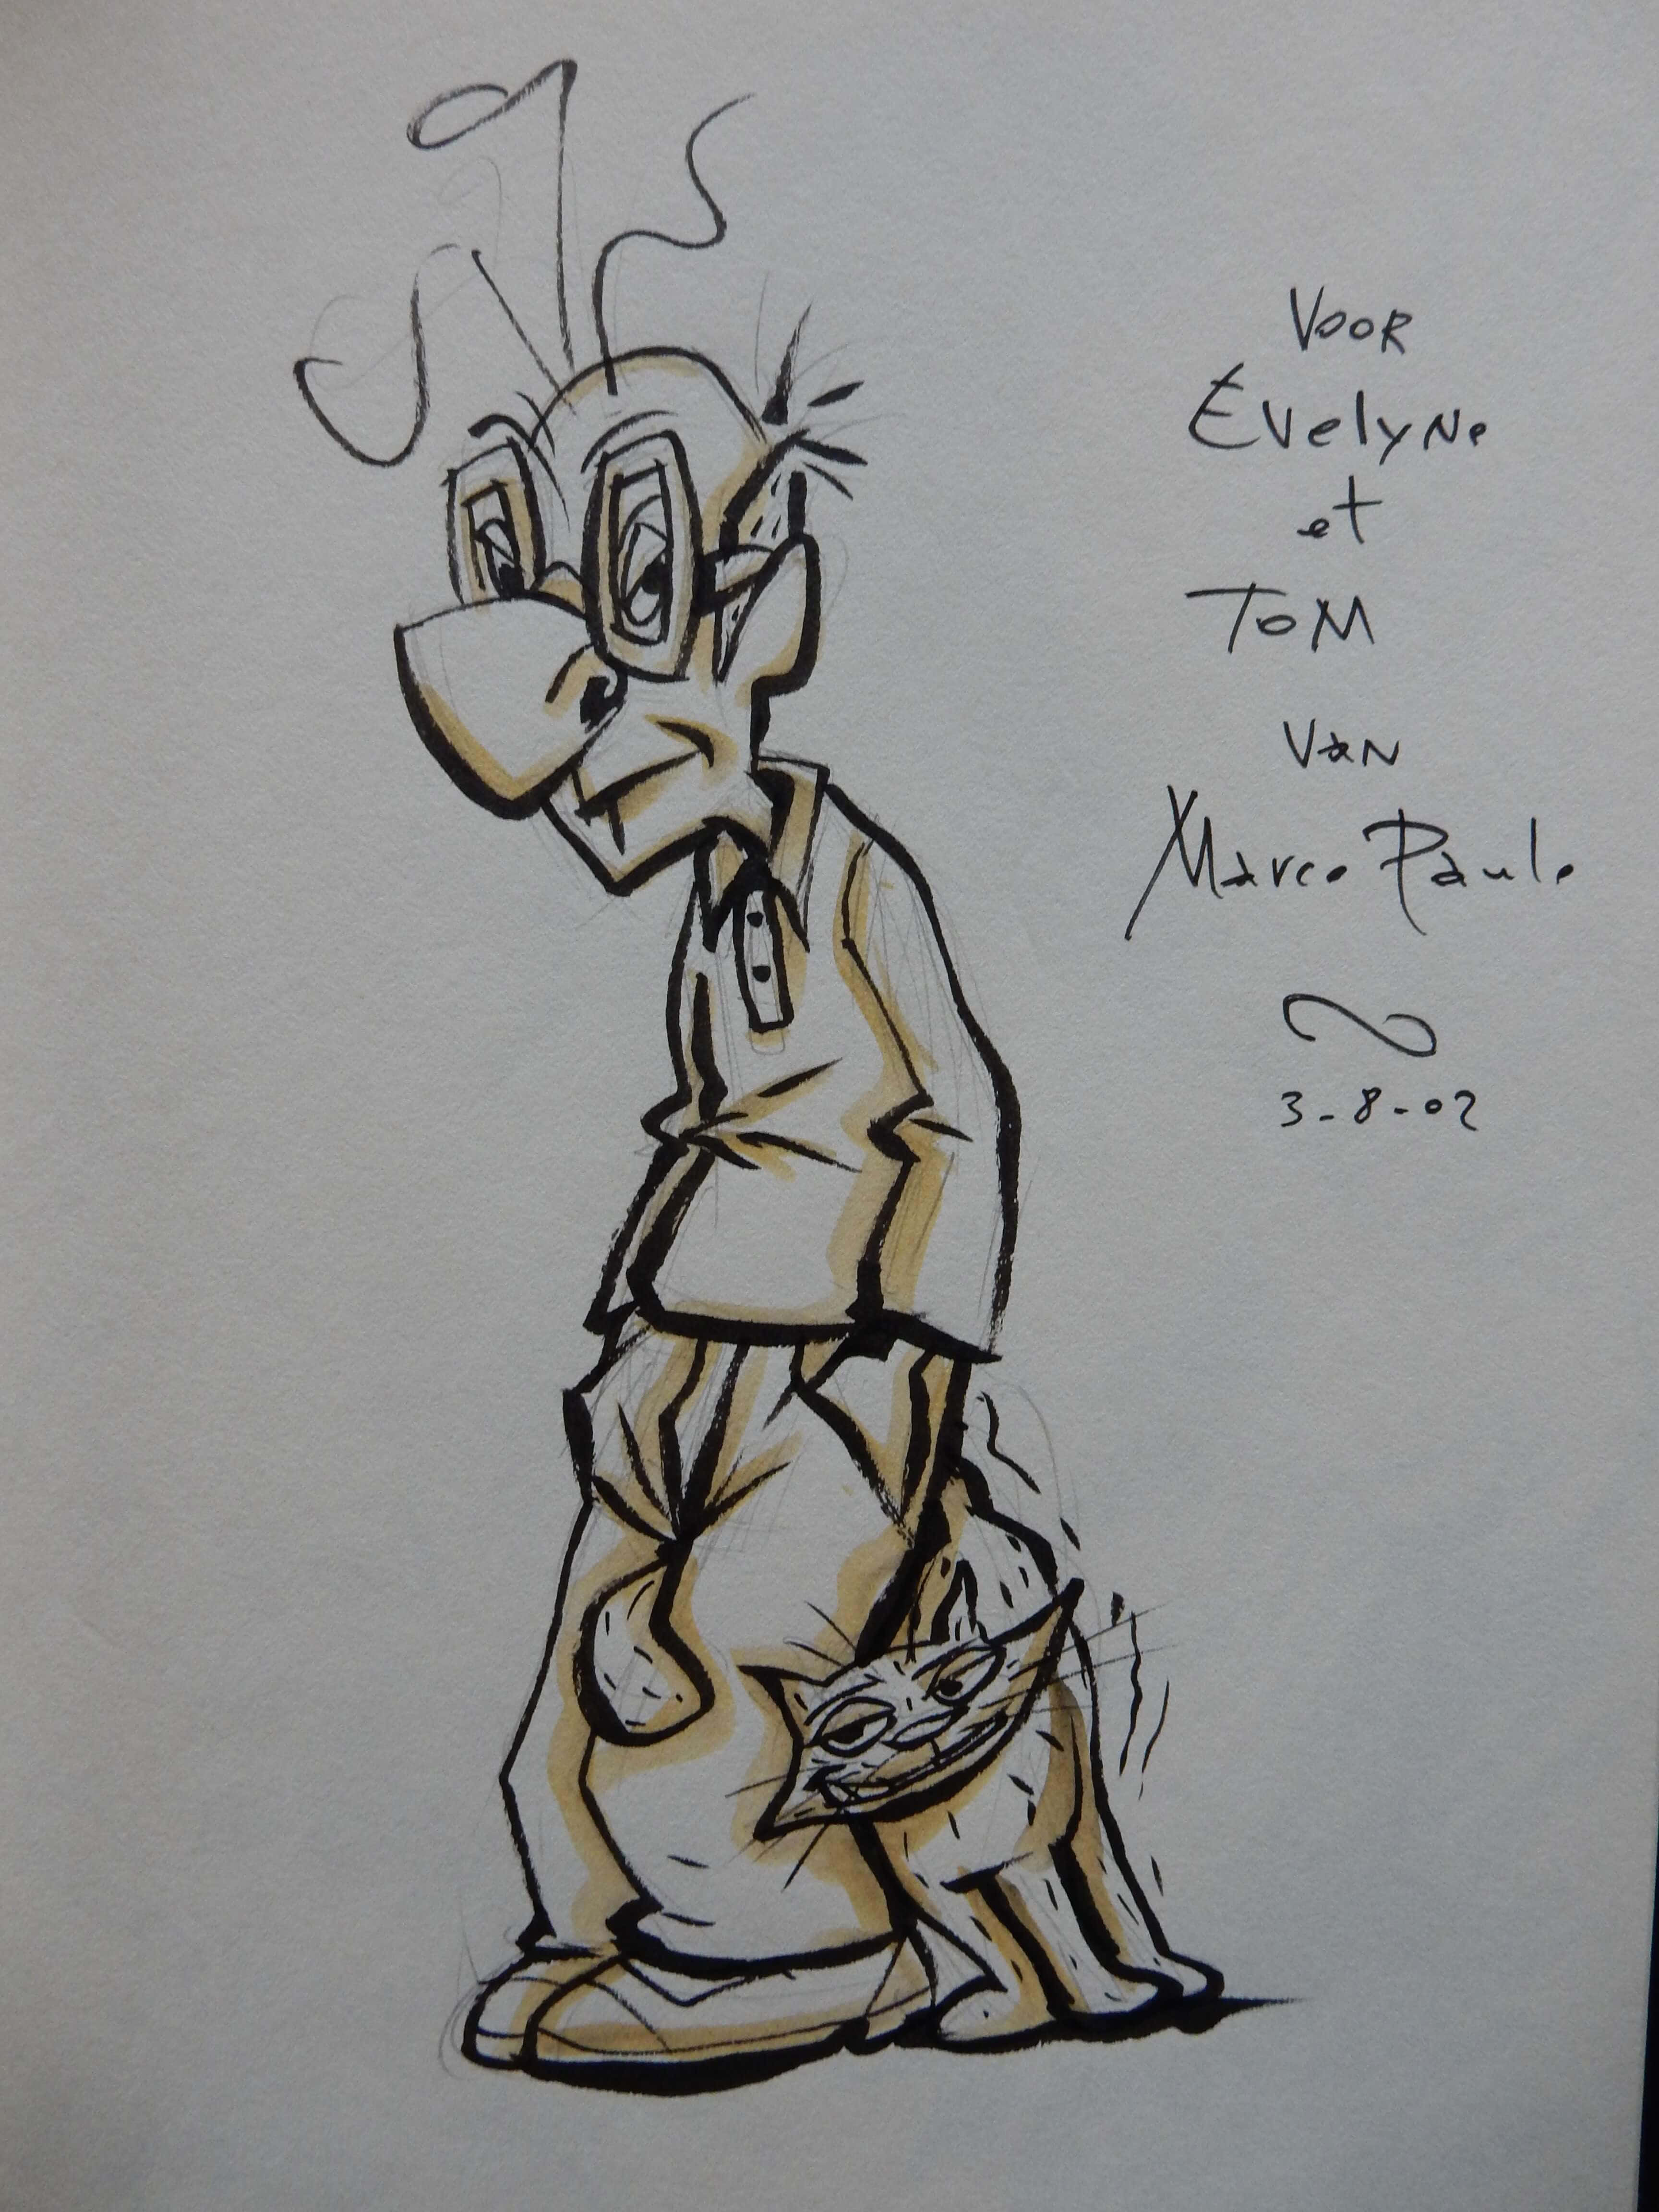 VOOR
EvelyNe
et
ToM
VaN
Marco Paulo
3-8-02